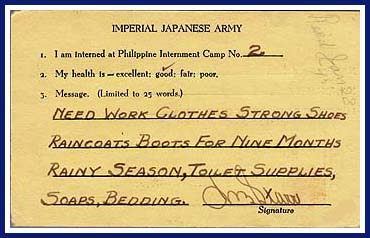 IMPERIAL JAPANESE ARMY
1. I am interned at Philippine Internment Camp No. 2
2. My health is — excellent; good; fair; poor.
3. Message. (Limited to 25 words.)
NEED WORK CLOTHES STRONG SHOES
RAINCOATS BOOTS FOR NINE MONTHS
RAINY SEASON, TOILET SUPPLIES,
SOAPS, BEDDING.
Signature